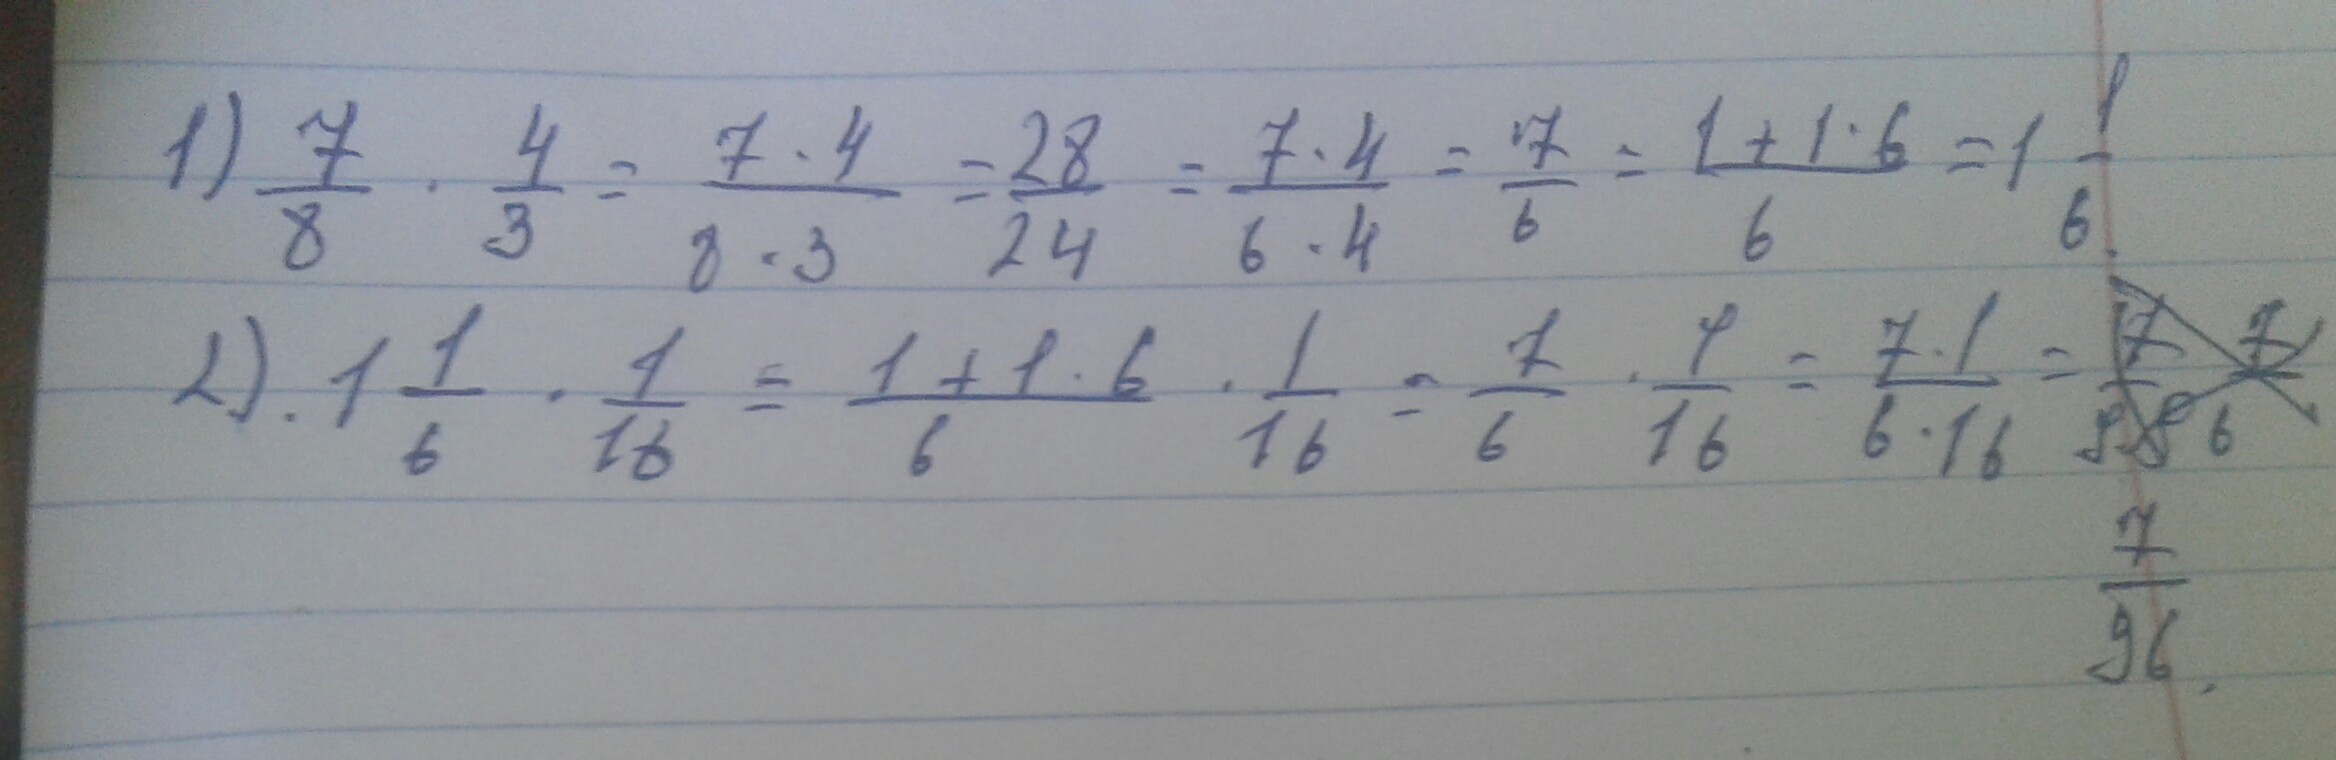 1) 7/8 · 4/3 = 7·4/8·3 = 28/24 = 7·4/6·4 = 7/6 = 1+1·6/6 = 1 1/6.
2). 1 1/6 · 1/16 = 1+1·6/6 · 1/16 = 7/6 · 1/16 = 7·1/6·16 =
7/96.